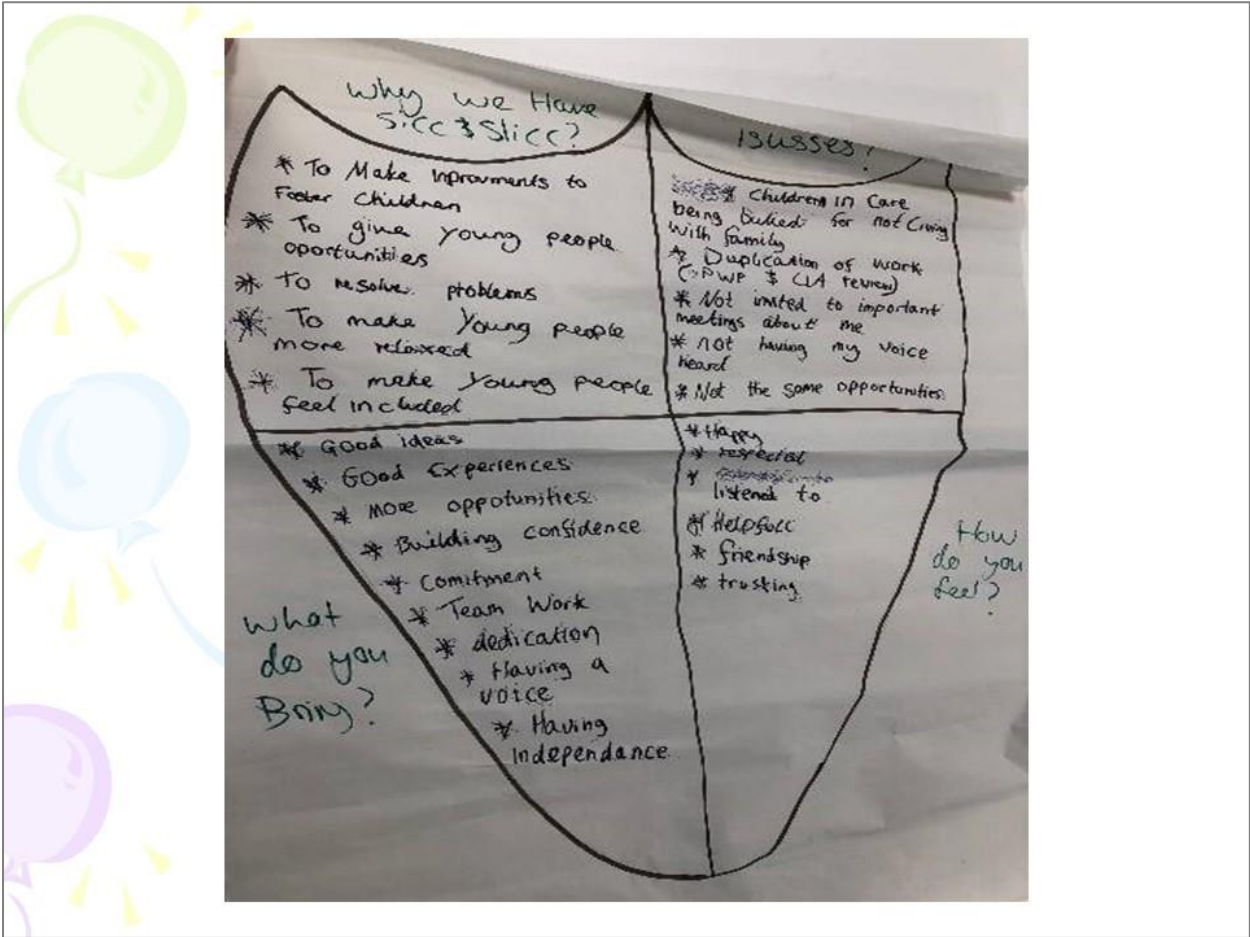 Why we Have
Sicc & Slicc?
* To Make Inprovments to
Foster Children
* To give young people
oportunities
* To resolve problems
* To make Young people
more relaxed
* To make Young people
feel included
Issuses?
* Children in Care
being bullied for not living
with family
* Duplication of work
(PWP & CLA review)
* Not invited to important
meetings about me
* not having my voice
heard
* Not the same opportunities
What
do you
Bring?
* Good ideas
* Good Experiences
* More oppotunities
* Building confidence
* Comitment
* Team Work
* dedication
* Having a
voice
* Having
Independance
How
do you
feel?
* Happy
* respected
*
listened to
* Helpfull
* friendship
* trusting